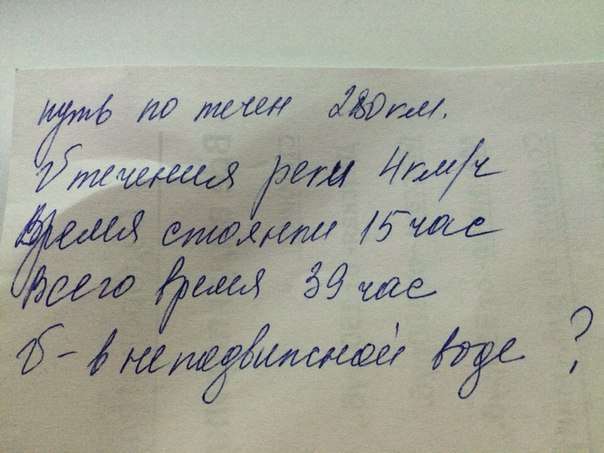 путь по течен 280 км.
V течения реки 4 км/ч
Время стоянки 15 час
Всего время 39 час
V - в неподвижной воде ?